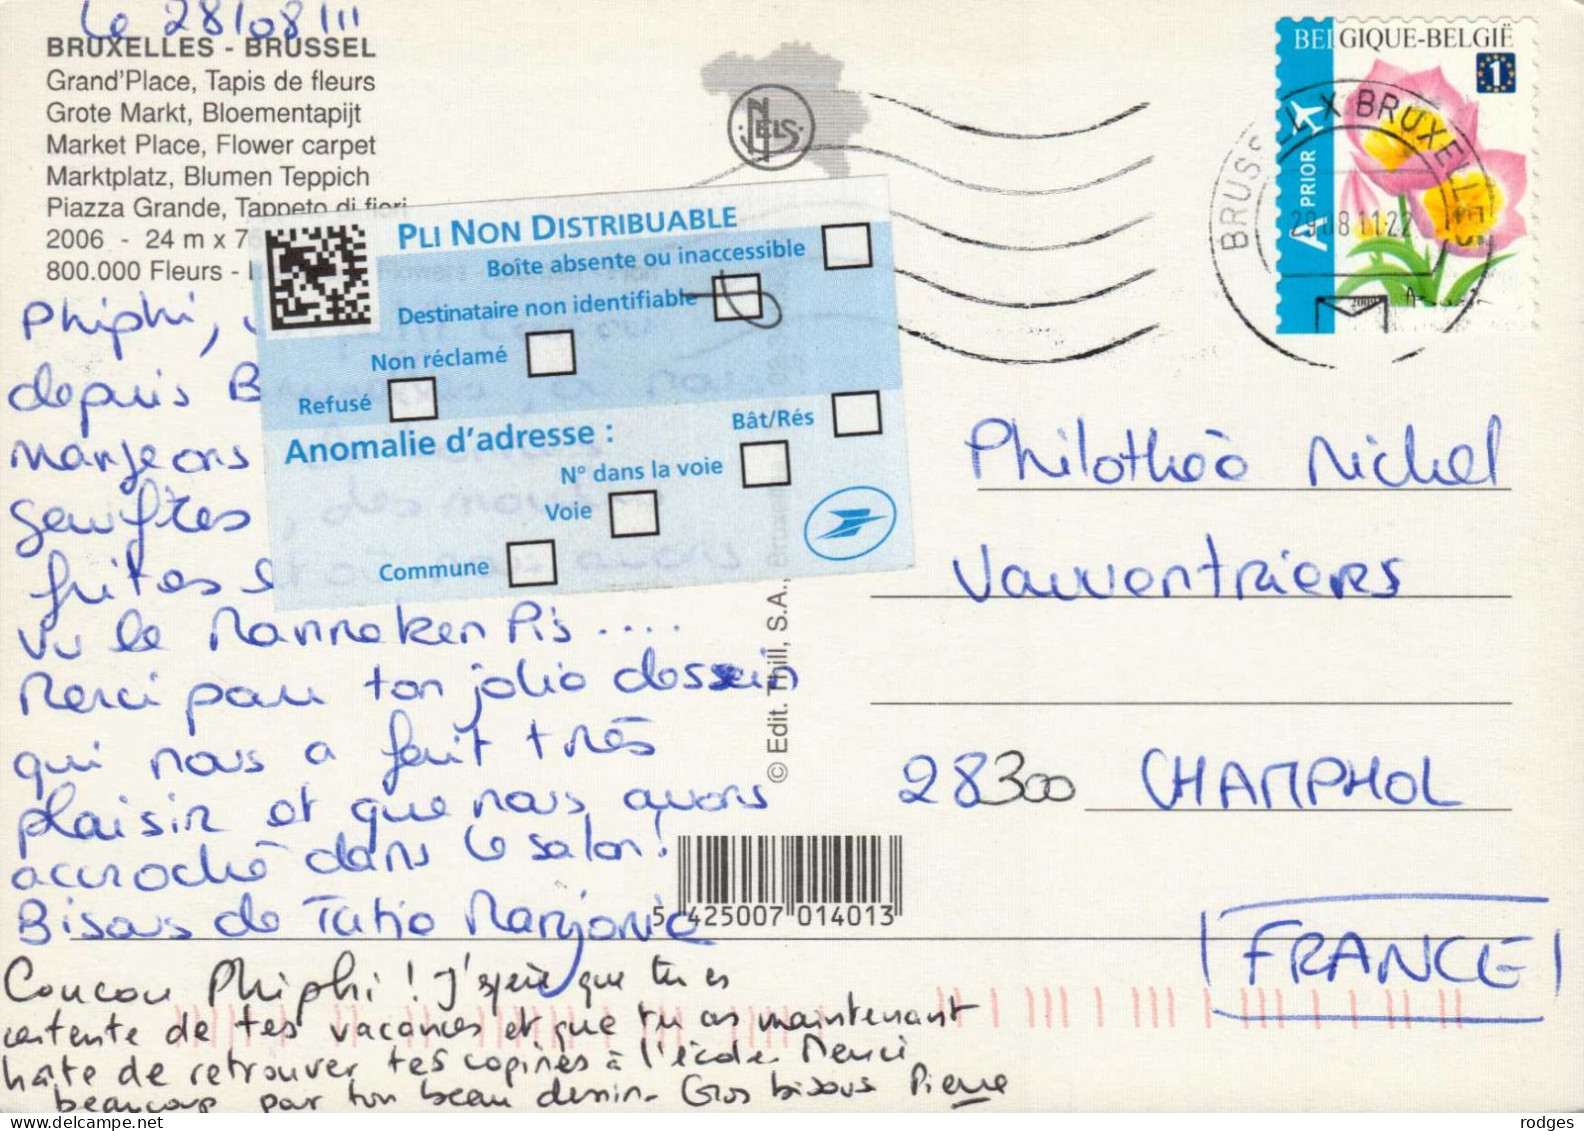 Le 28/08/11
BRUXELLES - BRUSSEL
Grand'Place, Tapis de fleurs
Grote Markt, Bloementapijt
Market Place, Flower carpet
Marktplatz, Blumen Teppich
Piazza Grande, Tappeto di fiori
2006 - 24 m x 7
800.000 Fleurs -
NELS
BELGIQUE-BELGIË
1
A PRIOR
BRUSSEL X BRUXELLES
29 08 11-22
PLI NON DISTRIBUABLE
Boîte absente ou inaccessible
Destinataire non identifiable
Non réclamé
Refusé
Anomalie d'adresse :
Bât/Rés
N° dans la voie
Voie
Commune
Phiphi,
depuis B
mangeons
gauffres
frites et où nous avons
vu le Manneken Pis ....
Merci pour ton jolie dessin
qui nous a fait très
plaisir et que nous avons
accroché dans le salon!
Bisous de Tatie Marjorie
Coucou Phiphi ! J'espère que tu es
contente de tes vacances et que tu as maintenant
hâte de retrouver tes copines à l'école. Merci
beaucoup pour ton beau dessin. Gros bisous Pierre
© Edit. Thill, S.A.,
Philothéo Michel
Vauventriers
28300 CHAMPHOL
FRANCE
5 425007 014013
rodges